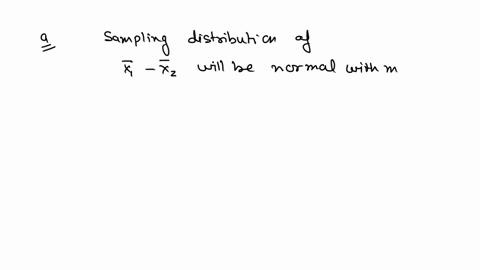 a Sampling distribution of
x̄₁ - x̄₂ will be normal with m